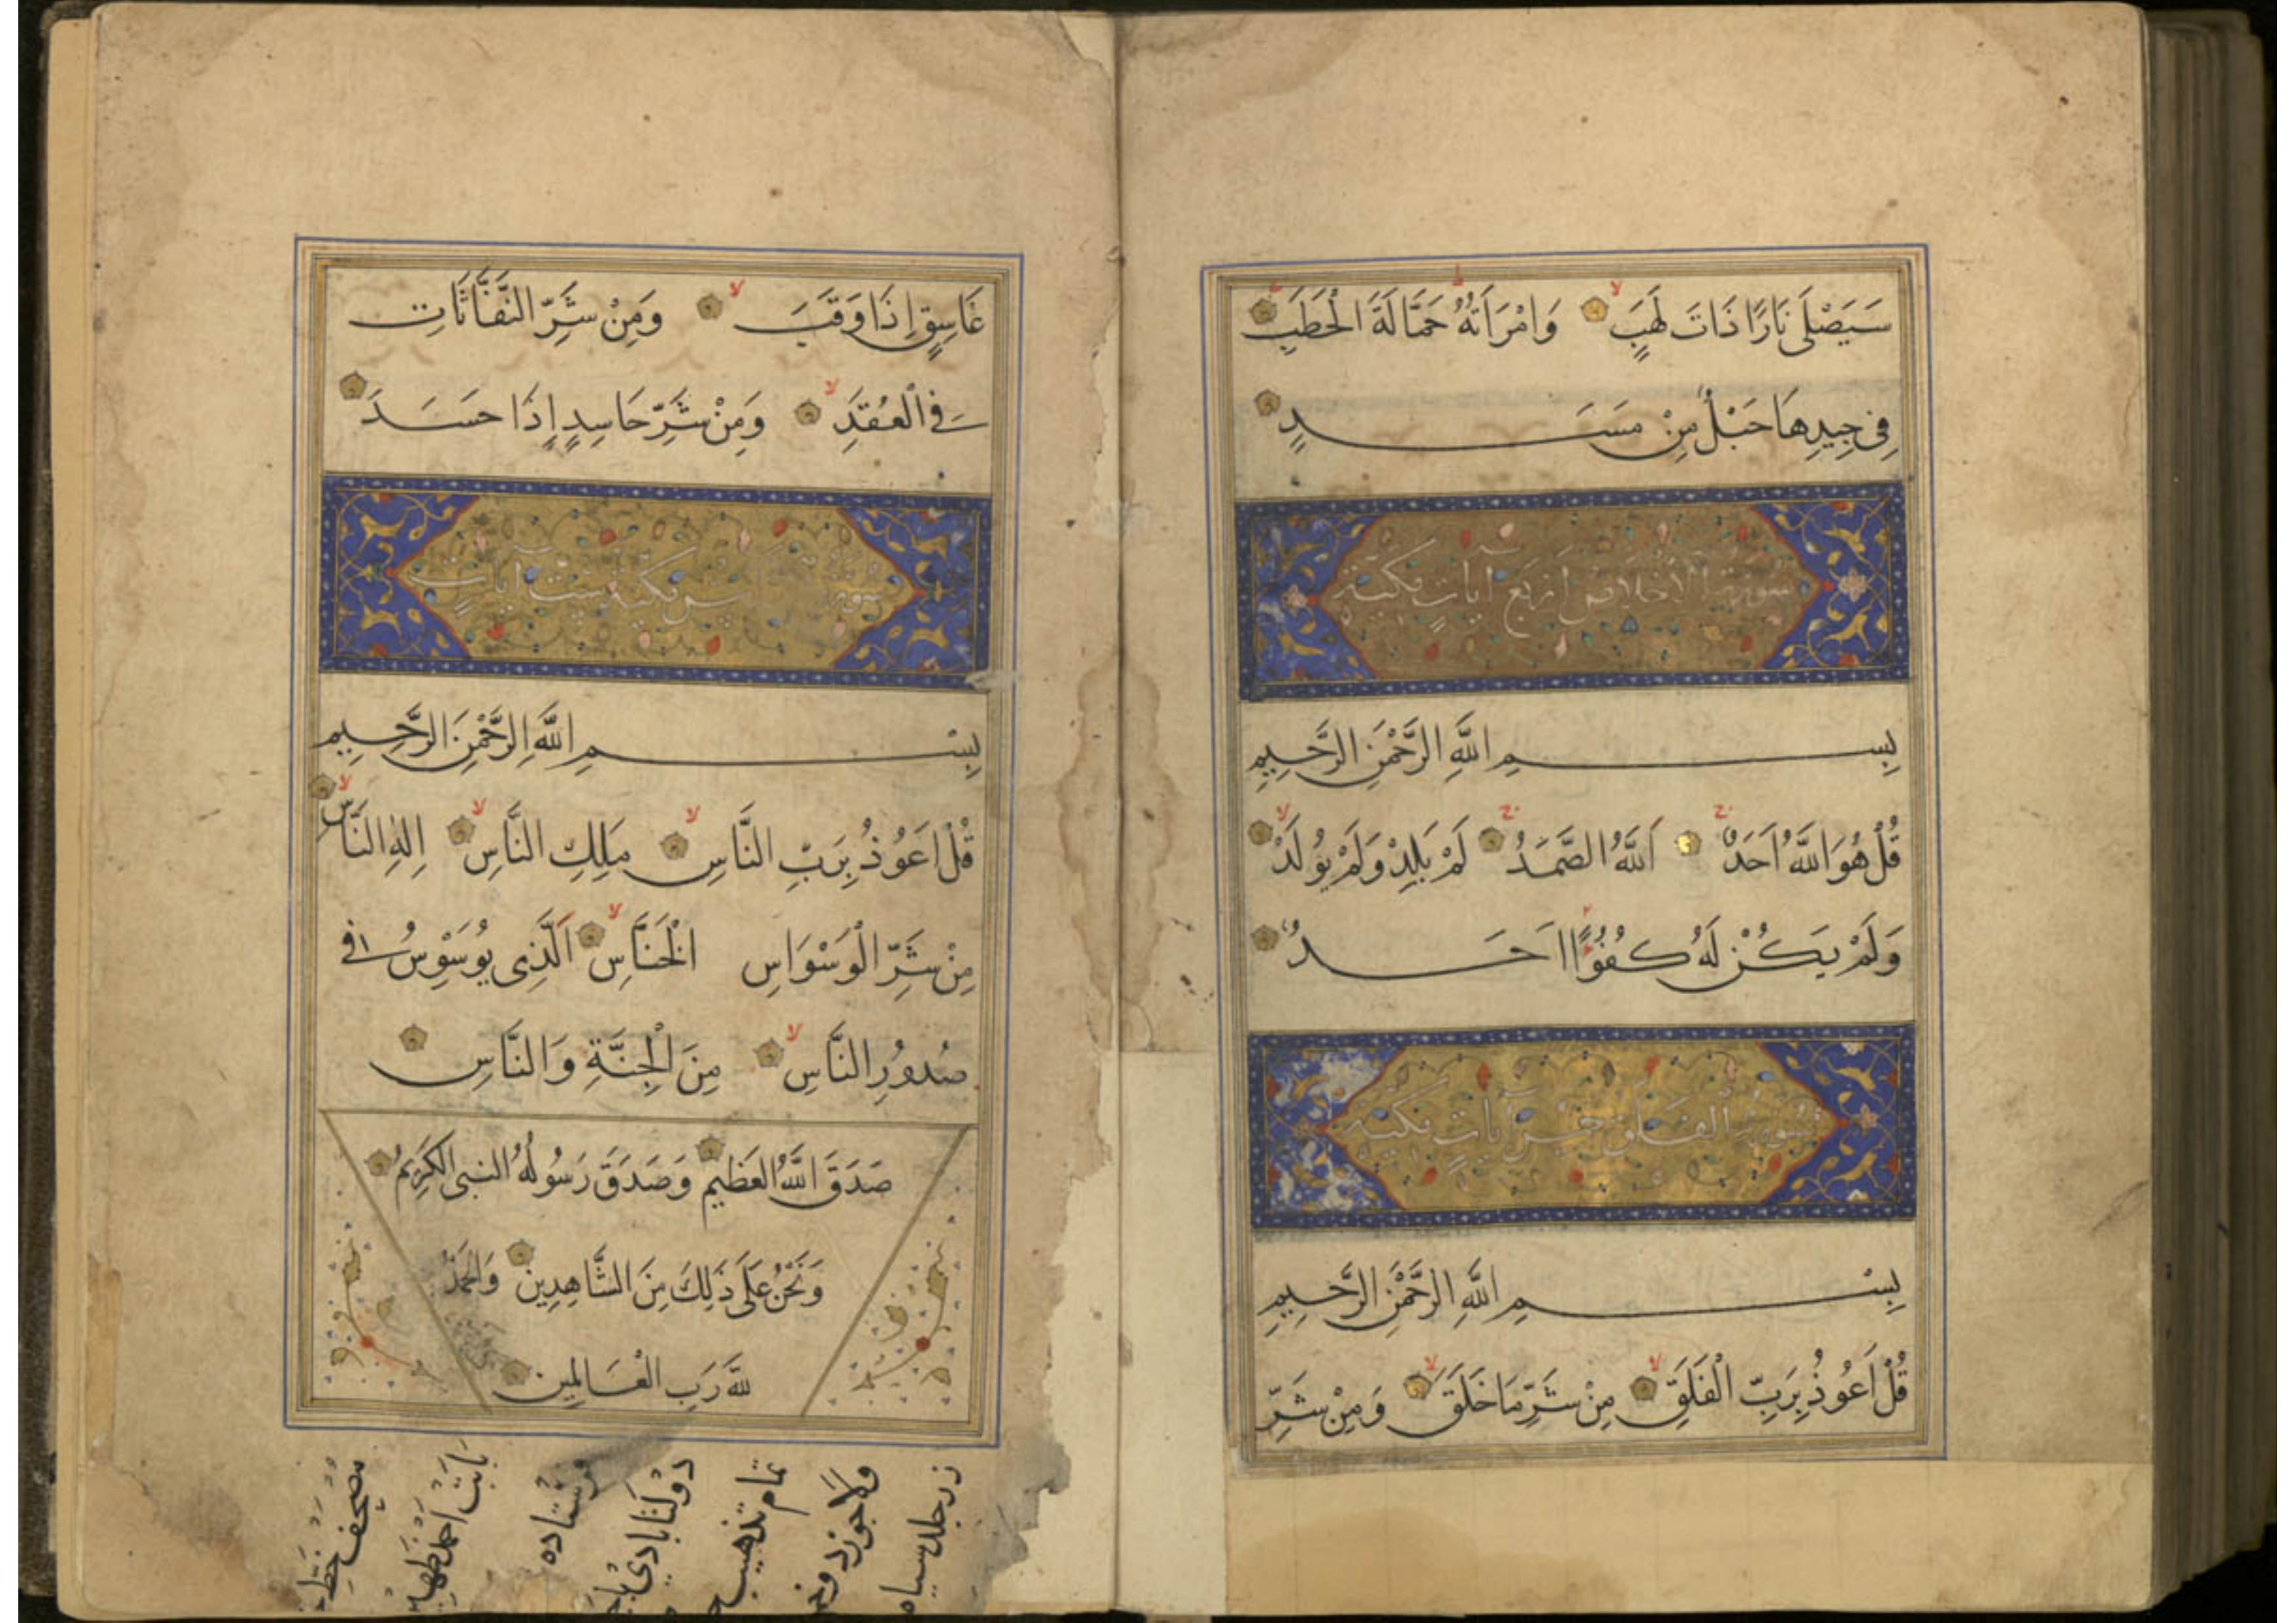 سَيَصْلَى نَارًا ذَاتَ لَهَبٍ لا وَامْرَاَتُهُ ط حَمَّالَةَ الْحَطَبِ
فِى جِيدِهَا حَبْلٌ مِنْ مَسَدٍ
سورة الاخلاص اربع آيات مكية
بِسْمِ اللَّهِ الرَّحْمٰنِ الرَّحِيمِ
قُلْ هُوَ اللَّهُ اَحَدٌ ج اَللَّهُ الصَّمَدُ ج لَمْ يَلِدْ وَلَمْ يُولَدْ لا
وَلَمْ يَكُنْ لَهُ كُفُوًا اَحَدٌ
سورة الفلق خمس آيات مكية
بِسْمِ اللَّهِ الرَّحْمٰنِ الرَّحِيمِ
قُلْ اَعُوذُ بِرَبِّ الْفَلَقِ لا مِنْ شَرِّ مَا خَلَقَ لا وَمِنْ شَرِّ
غَاسِقٍ اِذَا وَقَبَ لا وَمِنْ شَرِّ النَّفَّاثَاتِ
فِى الْعُقَدِ لا وَمِنْ شَرِّ حَاسِدٍ اِذَا حَسَدَ
سورة مكية ست آيات
بِسْمِ اللَّهِ الرَّحْمٰنِ الرَّحِيمِ
قُلْ اَعُوذُ بِرَبِّ النَّاسِ لا مَلِكِ النَّاسِ لا اِلٰهِ النَّاسِ لا
مِنْ شَرِّ الْوَسْوَاسِ الْخَنَّاسِ لا اَلَّذِى يُوَسْوِسُ فِى
صُدُورِ النَّاسِ لا مِنَ الْجِنَّةِ وَالنَّاسِ
صَدَقَ اللَّهُ العَظِيم وَصَدَقَ رَسُولُهُ النبى الكَرِيمُ
وَنَحْنُ عَلَى ذَلِكَ مِنَ الشَّاهِدِين وَالحَمْدُ
لِلَّهِ رَبِ الْعَالَمِين
مصحف خط
بابت احمد
فرستاده
دولتابادى
تمام تذهيب
ولاجورد و
زر جلد سياه